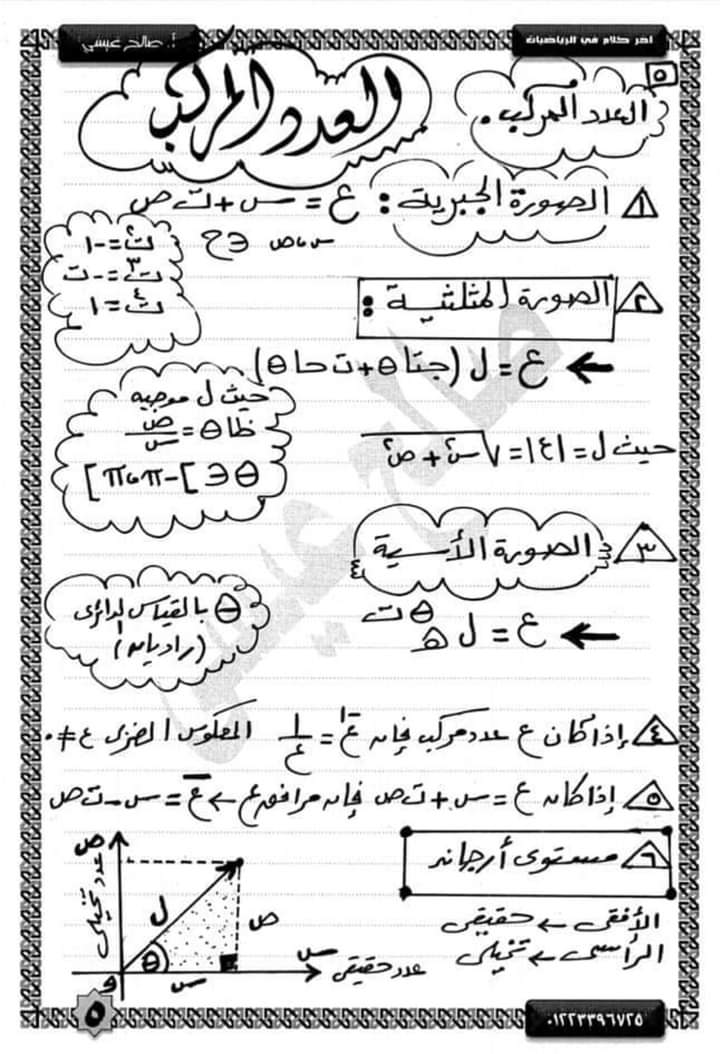 أ. صالح عيسي
اخر كلام في الرياضيات
٥
العدد المركب
العدد المركب.
١ الصورة الجبرية : ع = س + ت ص
س، ص ∈ ح
ت² = -١
ت³ = -ت
ت⁴ = ١
٢ الصورة المثلثية :
← ع = ل (جتا θ + ت حا θ)
حيث ل موجبه
ظا θ = ص/س
θ ∈ ]-π، π]
حيث ل = |ع| = √(س² + ص²)
٣ الصورة الأسية
← ع = ل هـ^(θ ت)
θ بالقياس الدائرى
(راديان)
٤ إذا كان ع عدد مركب فإن ع⁻¹ = ١/ع المعكوس الضربى ع ≠ ٠
٥ إذا كان ع = س + ت ص فإن مرافق ع ← ع̅ = س - ت ص
٦ مستوى أرجاند
الأفقى ← حقيقى
الرأسى ← تخيلى
ص
عدد تخيلى
ل
ص
θ
و
س
س
عدد حقيقى
صالح عيسى
٥
٠١٢٢٣٣٩٦٧٢٥